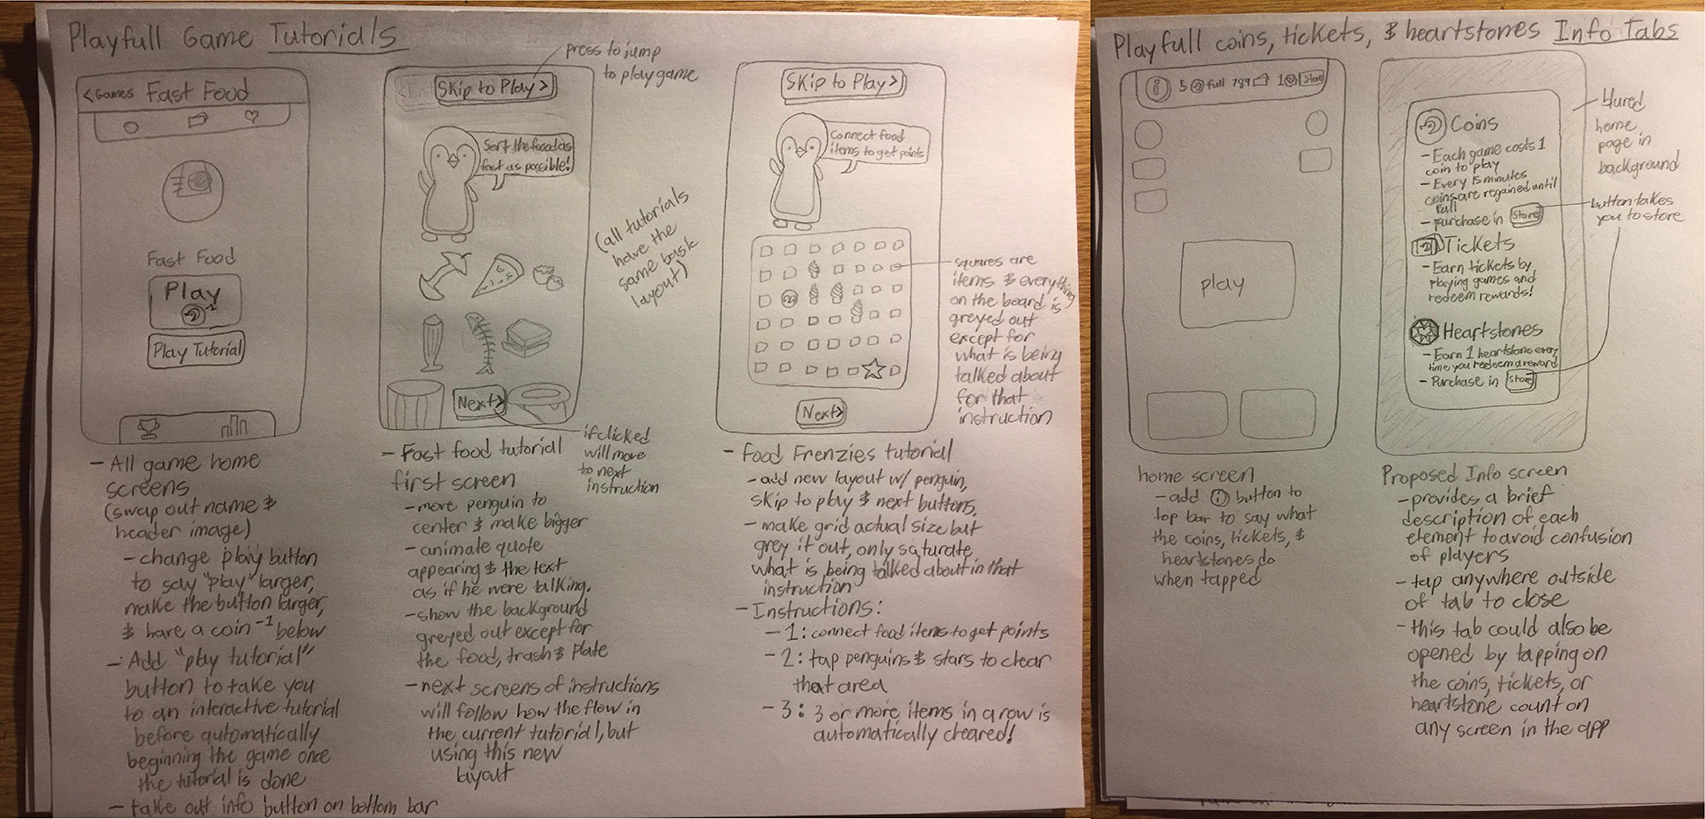 Playfull Game Tutorials
<Games Fast Food
Fast Food
Play
-1
Play Tutorial
- All game home
screens
(swap out name &
header image)
- change play button
to say "play" larger,
make the button larger,
& have a coin -1 below
- Add "play tutorial"
button to take you
to an interactive tutorial
before automatically
beginning the game once
the tutorial is done
- take out info button on bottom bar
Skip to Play >
press to jump
to play game
Sort the food as
fast as possible!
Next>
if clicked
will move
to next
instruction
(all tutorials
have the
same bask
layout)
- Fast food tutorial
first screen
- move penguin to
center & make bigger
- animate quote
appearing & the text
as if he were talking.
- show the background
greyed out except for
the food, trash & plate
- next screens of instructions
will follow how the flow in
the current tutorial, but
using this new
layout
Skip to Play >
Connect food
items to get points
Next>
squares are
items & everything
on the board is
greyed out
except for
what is being
talked about
for that
instruction
- Food Frenzies tutorial
- add new layout w/ penguin,
skip to play & next buttons.
- make grid actual size but
grey it out, only saturate
what is being talked about in that
instruction
- Instructions:
- 1: connect food items to get points
- 2: tap penguins & stars to clear
that area
- 3: 3 or more items in a row is
automatically cleared!
Playfull coins, tickets, & heartstones Info Tabs
i 5 full 789 1 Store
play
home screen
- add i button to
top bar to say what
the coins, tickets, &
heartstones do
when tapped
Coins
- Each game costs 1
coin to play
- Every 15 minutes
coins are regained until
full
- purchase in Store
Tickets
- Earn tickets by
playing games and
redeem rewards!
Heartstones
- Earn 1 heartstone every
time you redeem a reward
- Purchase in Store
blured
home
page in
background
button takes
you to store
Proposed Info screen
- provides a brief
description of each
element to avoid confusion
of players
- tap anywhere outside
of tab to close
- this tab could also be
opened by tapping on
the coins, tickets, or
heartstone count on
any screen in the app